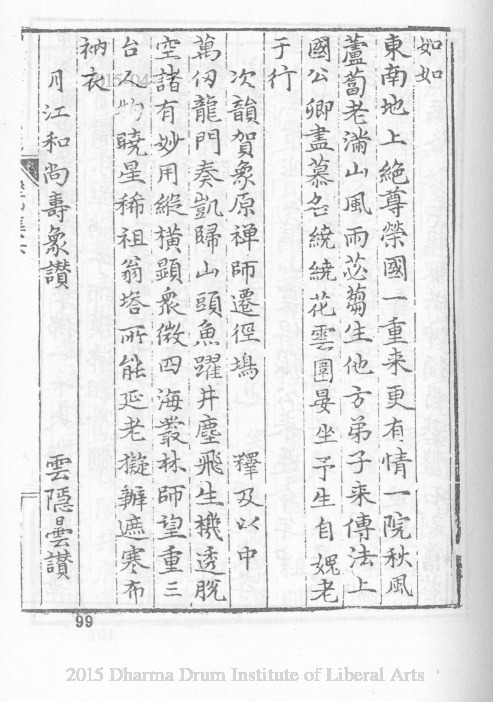 如如
東南地上絕尊榮國一重来更有情一院秋風
蘆蔔老滿山風雨苾蒭生他方弟子来傳法上
國公卿盡慕名繞繞花雲圍晏坐予生自媿老
于行
次韻賀象原禅師遷徑塢 釋及以中
萬仞龍門奏凱歸山頭魚躍井塵飛生機透脫
空諸有妙用縱橫顯衆微四海叢林師望重三
台人物曉星稀祖翁塔所能延老擬辦遮寒布
衲衣
月江和尚壽象讃 雲隱曇讃
99
2015 Dharma Drum Institute of Liberal Arts